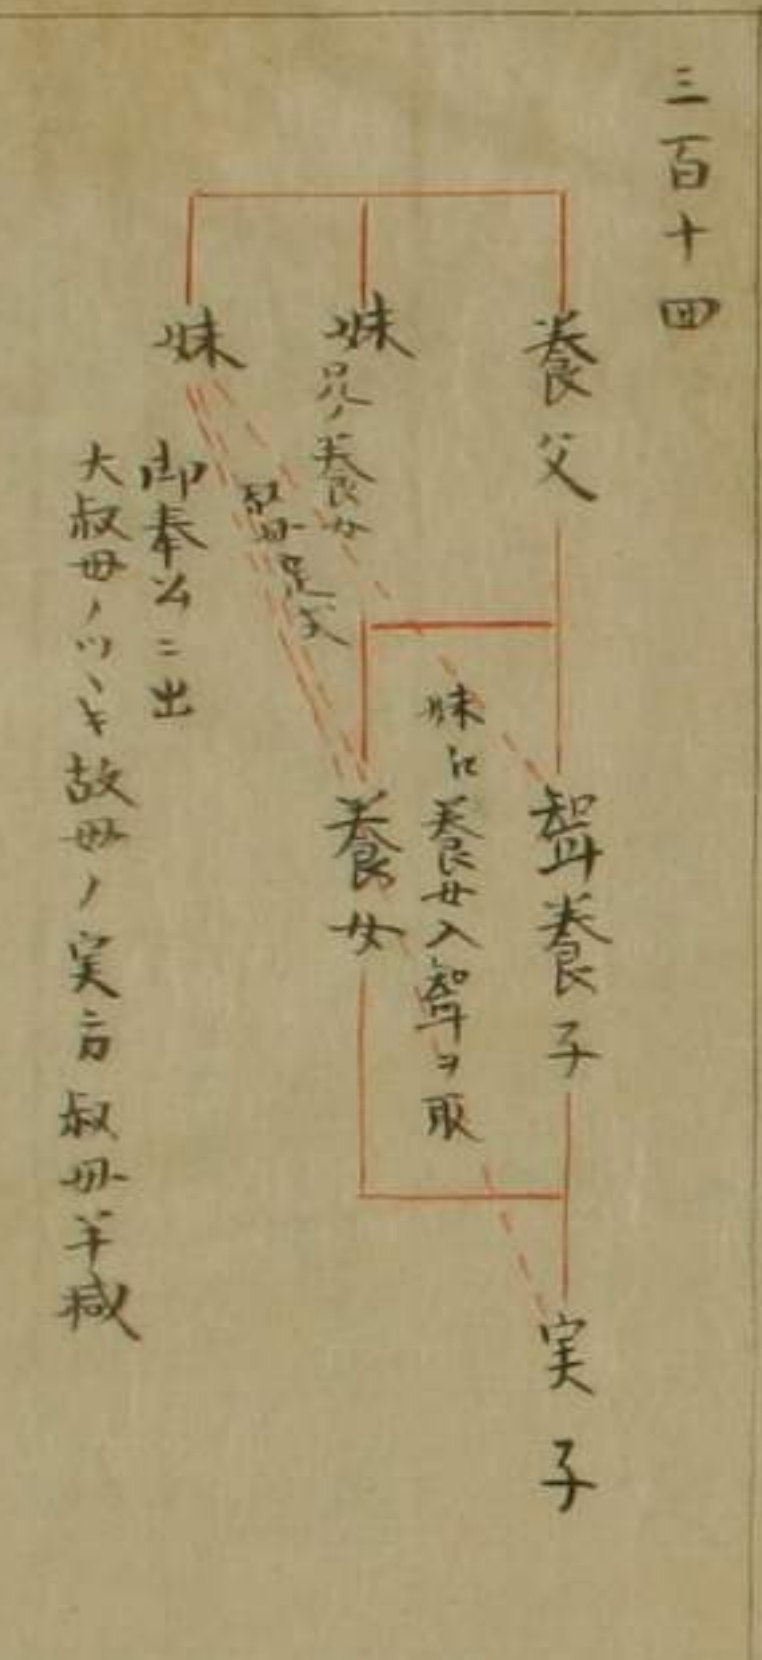 三百十四
養父
聟養子
実子
妹江養女入聟ヲ取
妹
兄ノ養女
養女
妹
叔母定式
御奉公ニ出
大叔母ノツヽキ故母ノ実方叔母半減